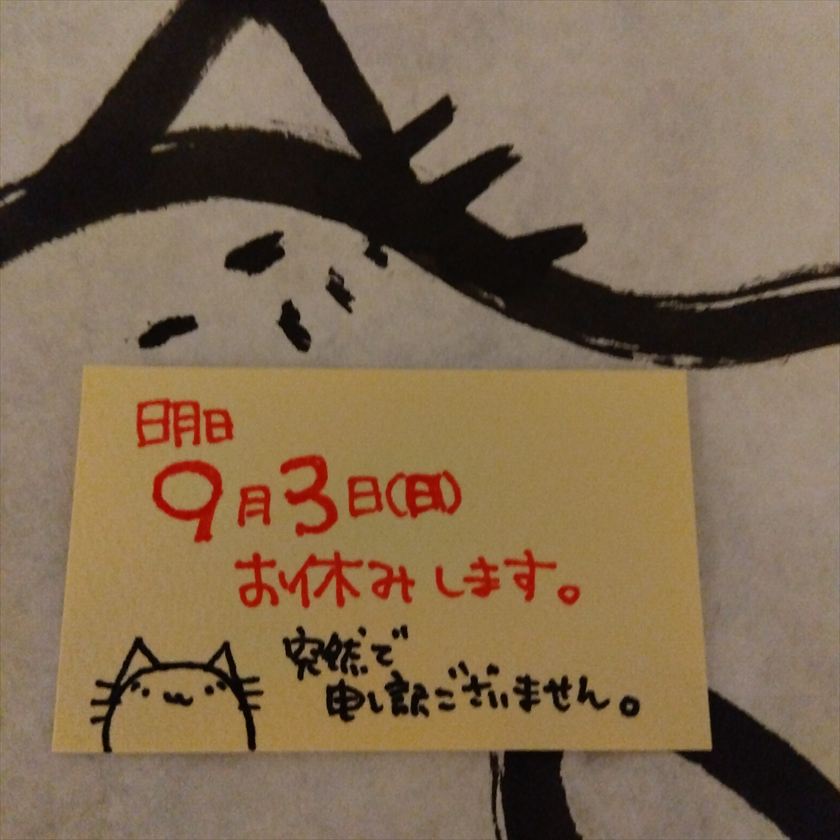 明日
9月3日(日)
お休みします。
突然で
申し訳ございません。